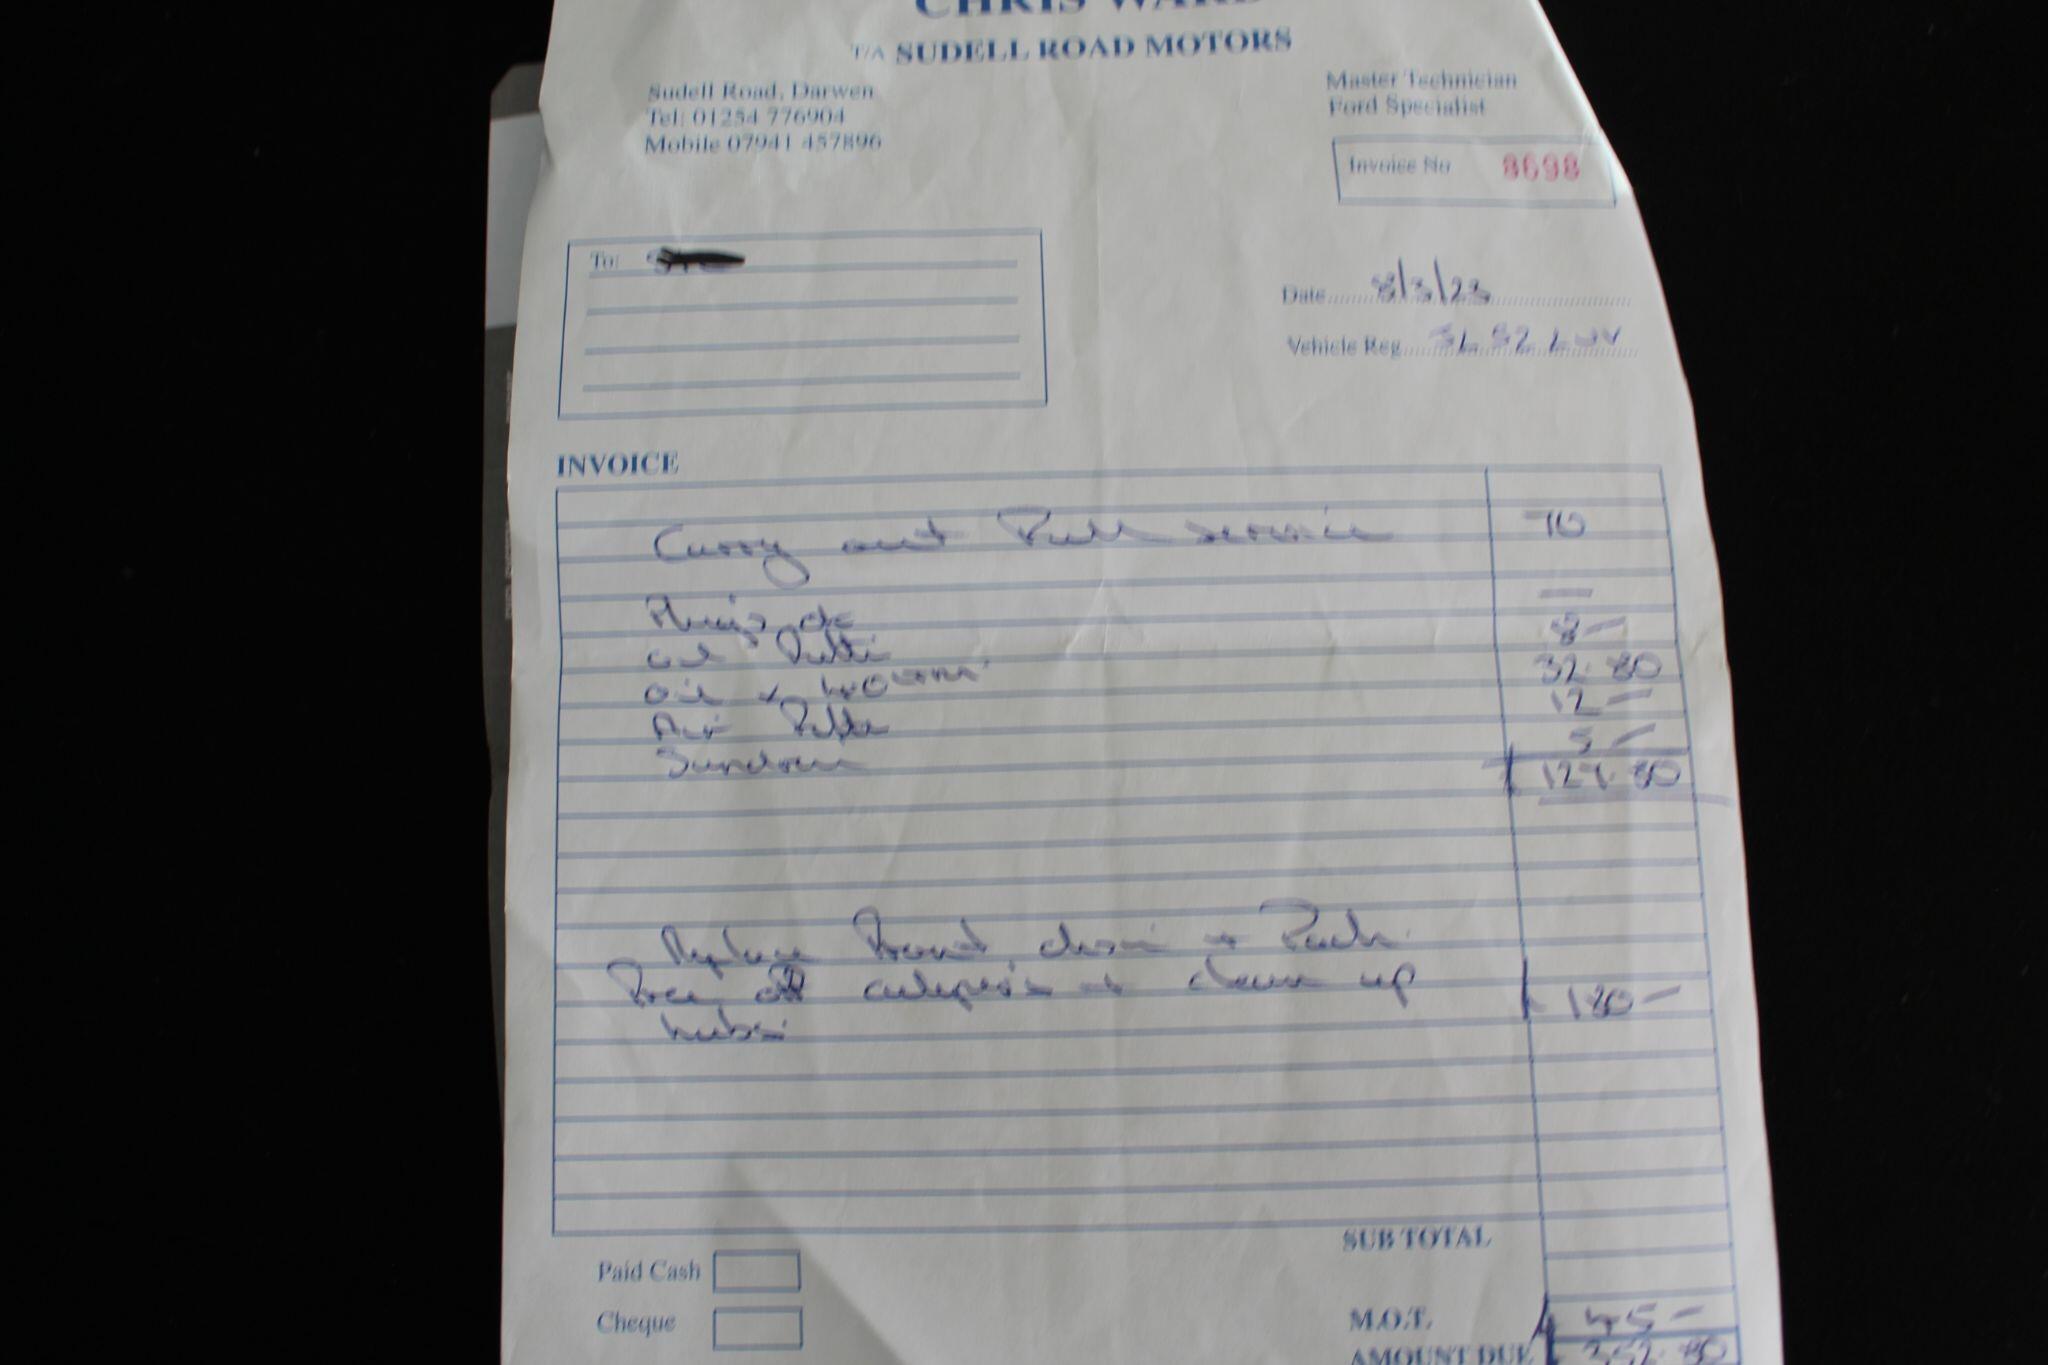 CHRIS WARD
T/A SUDELL ROAD MOTORS
Sudell Road, Darwen
Tel: 01254 776904
Mobile 07941 457896
Master Technician
Ford Specialist
Invoice No 8698
To:
Date 8/3/23
Vehicle Reg
INVOICE
Carry out Full service 70
Plugs ok —
oil Filter 8 —
oil 32.80
Air Filter 12 —
Sundries 5 —
127.80
Replace Front discs + Pads
Free off + clean up 180 —
hubs
SUB TOTAL
Paid Cash
Cheque
M.O.T. 45 —
AMOUNT DUE 352.80